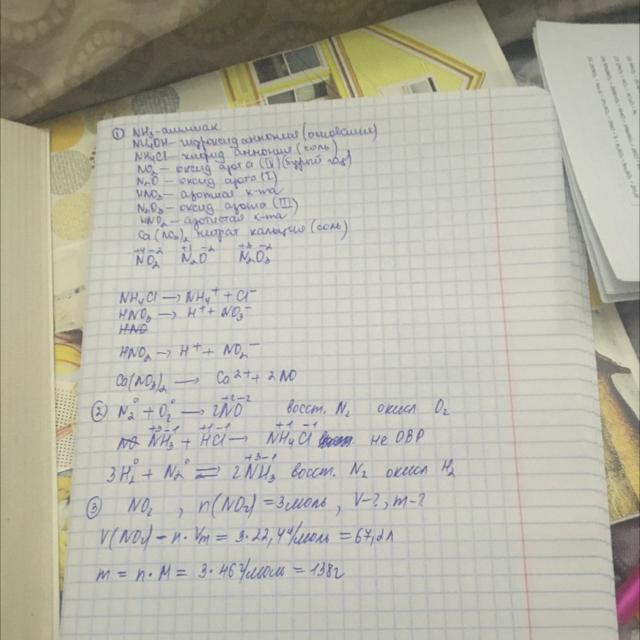 ① NH₃ - аммиак
NH₄OH - гидроксид аммония (основание)
NH₄Cl - хлорид аммония (соль)
NO₂ - оксид азота (IV) (бурый газ)
N₂O - оксид азота (I)
HNO₃ - азотная к-та
N₂O₃ - оксид азота (III)
HNO₂ - азотистая к-та
Ca(NO₃)₂ нитрат кальция (соль)
+4 -2 +1 -2 +3 -2
NO₂ N₂O N₂O₃
NH₄Cl → NH₄⁺ + Cl⁻
HNO₃ → H⁺ + NO₃⁻
HNO₂ → H⁺ + NO₂⁻
Ca(NO₃)₂ → Ca²⁺ + 2NO
② N₂⁰ + O₂⁰ → 2NO восст. N₂ окисл O₂
NH₃ + HCl → NH₄Cl не ОВР
3H₂⁰ + N₂⁰ ⇌ 2NH₃ восст. N₂ окисл H₂
③ NO₂, n(NO₂) = 3моль, V-?, m-?
V(NO₂) = n · Vm = 3·22,4 л/моль = 67,2л
m = n · M = 3·46 г/моль = 138г